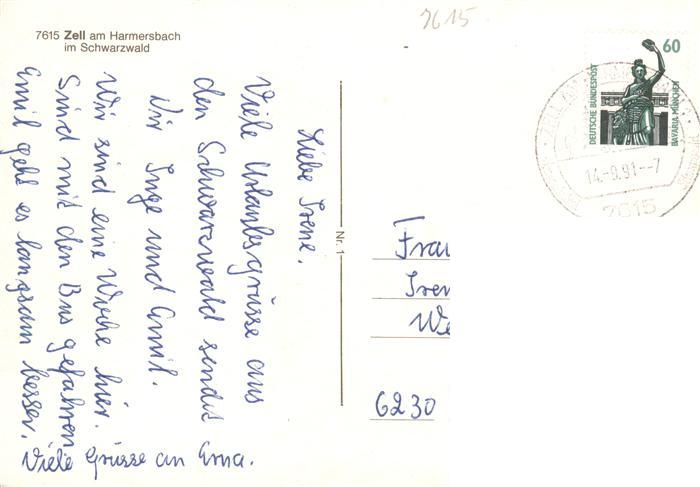 7615
7615 Zell am Harmersbach
im Schwarzwald
Liebe Irene.
Viele Urlaubsgrüsse aus
den Schwarzwald sendet
Dir Inge und Emil.
Wir sind eine Woche hier.
Sind mit den Bus gefahren
Emil geht es langsam besser.
Viele Grüsse an Erna.
Nr. 1
60
DEUTSCHE BUNDESPOST
BAVARIA MÜNCHEN
14.-9.91--7
7615
Frau
Iren
We
6230